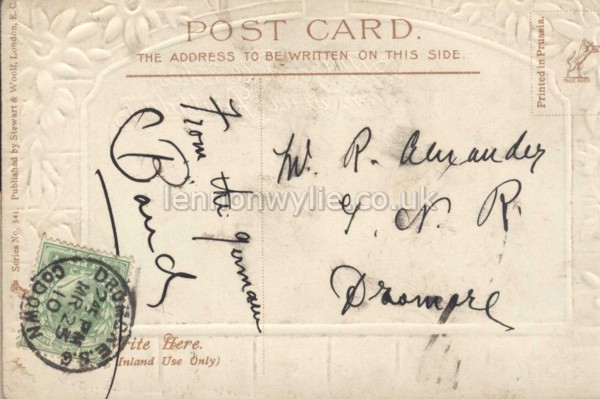 POST CARD.
THE ADDRESS TO BE WRITTEN ON THIS SIDE.
Printed in Prussia.
Series No. 541. Published by Stewart & Woolf, London, E.C.
From the german
Band
Mr. R. Alexander
G. N. R.
Dromore
lennonwylie.co.uk
DROMORE S.O.
CO. DOWN
2 45 PM
MR 23
10
Write Here.
(Inland Use Only)